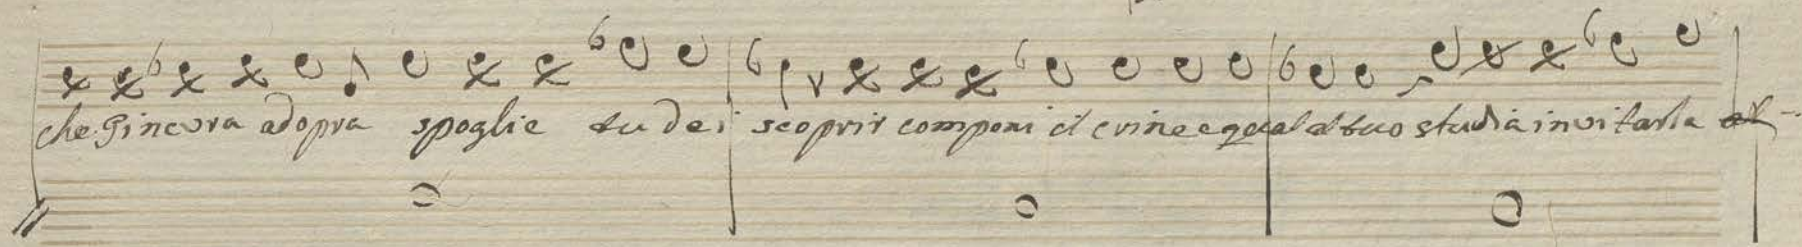 che Gineura adopra spoglie tu dei scoprir componi il crine e qual al tuo studia invitarla al